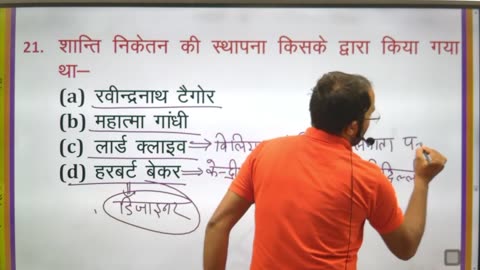 21. शान्ति निकेतन की स्थापना किसके द्वारा किया गया
था–
(a) रवीन्द्रनाथ टैगोर
(b) महात्मा गांधी
(c) लार्ड क्लाइव
(d) हरबर्ट बेकर
डिजाइनर